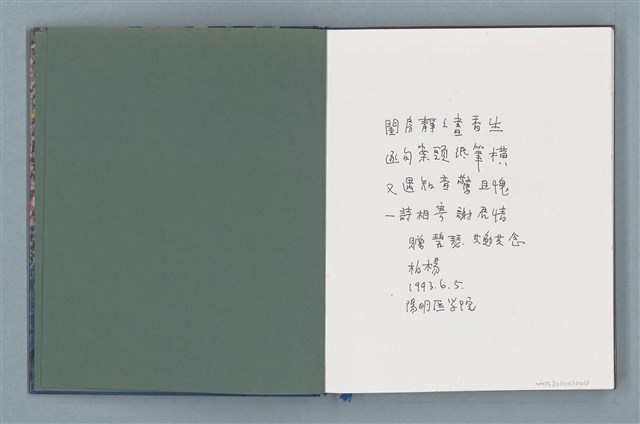 閨房靜靜書香生
逐句案頭紙筆橫
又遇知音驚且愧
一詩相寄謝君情
贈 碧瑟
念
柏楊
1993.6.5.
陽明医学院